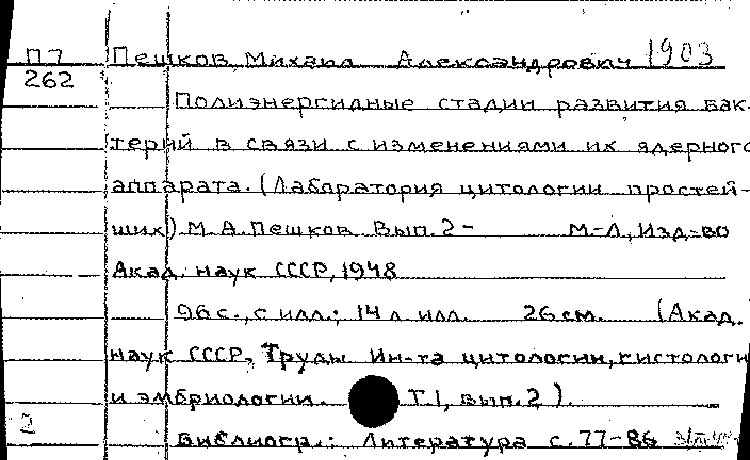 П7 Пешков, Михаил Александрович 1903
262
Полиэнергидные стадии развития бак-
терий в связи с изменениями их ядерного
аппарата. (Лаборатория цитологии простей-
ших) М.А. Пешков. Вып. 2- М-Л, Изд-во
Акад. наук СССР, 1948
96 с., с илл.; 14 л илл. 26 см. (Акад.
наук СССР, Труды Ин-та цитологии, гистологи
и эмбриологии. Т. 1, вып. 2).
Библиогр.: Литература с. 77-86